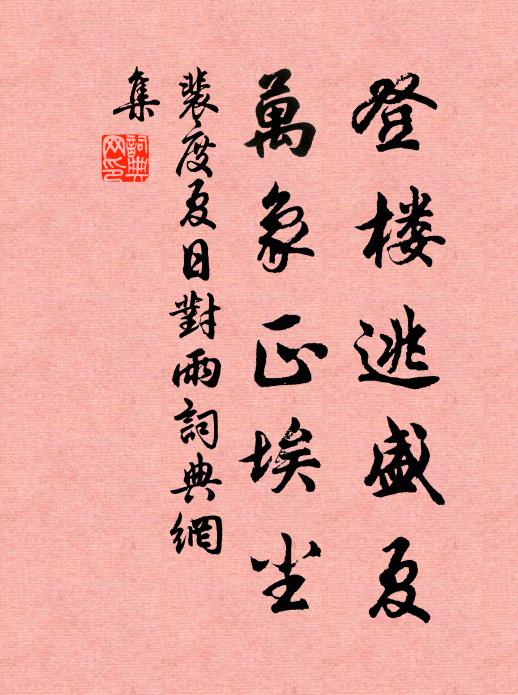 登楼逃盛夏
萬象正埃尘
裴度夏日對雨詞典網
集
詞典网印